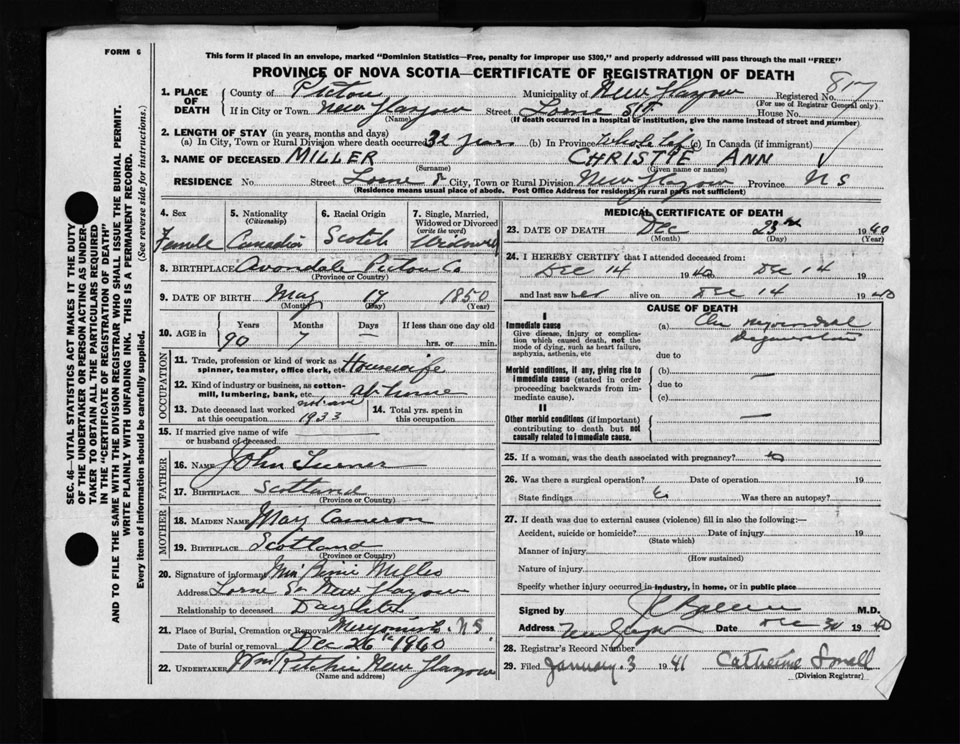 FORM 6
This form if placed in an envelope, marked "Dominion Statistics—Free, penalty for improper use $300," and properly addressed will pass through the mail "FREE"
PROVINCE OF NOVA SCOTIA—CERTIFICATE OF REGISTRATION OF DEATH
817
1. PLACE OF DEATH County of Pictou Municipality of New Glasgow Registered No.
(For use of Registrar General only)
If in City or Town New Glasgow Street Lorne St House No.
(Name) (If death occurred in a hospital or institution, give the name instead of street and number)
2. LENGTH OF STAY (in years, months and days)
(a) In City, Town or Rural Division where death occurred 32 years (b) In Province Whole Life (c) In Canada (if immigrant)
3. NAME OF DECEASED MILLER CHRISTIE ANN
(Surname) (Given name or names)
RESIDENCE No. Street Lorne St City, Town or Rural Division New Glasgow Province N S
(Residence means usual place of abode. Post Office Address for residents in rural parts not sufficient)
4. Sex 5. Nationality (Citizenship) 6. Racial Origin 7. Single, Married, Widowed or Divorced (write the word)
Female Canadian Scotch Widowed
8. BIRTHPLACE Avondale Pictou Co
(Province or Country)
9. DATE OF BIRTH May 19 1850
(Month) (Day) (Year)
10. AGE in Years Months Days If less than one day old
90 7 — hrs. or min.
OCCUPATION
11. Trade, profession or kind of work as spinner, teamster, office clerk, etc. Housewife
12. Kind of industry or business, as cotton-mill, lumbering, bank, etc. at home
13. Date deceased last worked at this occupation 1933 14. Total yrs. spent in this occupation
15. If married give name of wife or husband of deceased
FATHER
16. NAME John Turner
17. BIRTHPLACE Scotland
(Province or Country)
MOTHER
18. MAIDEN NAME Mary Cameron
19. BIRTHPLACE Scotland
(Province or Country)
20. Signature of informant Miss Miller
Address Lorne St New Glasgow
Relationship to deceased Daughter
21. Place of Burial, Cremation or Removal Merigomish N S
Date of burial or removal Dec 26th 1940
22. UNDERTAKER Wm Ritchie New Glasgow
(Name and address)
MEDICAL CERTIFICATE OF DEATH
23. DATE OF DEATH Dec 23rd 1940
(Month) (Day) (Year)
24. I HEREBY CERTIFY that I attended deceased from:
Dec 14 1940 to Dec 14 19
and last saw her alive on Dec 14 1940
CAUSE OF DEATH
I
Immediate cause
Give disease, injury or complication which caused death, not the mode of dying, such as heart failure, asphyxia, asthenia, etc
(a) Chr myocardial
Degeneration
due to
Morbid conditions, if any, giving rise to immediate cause (stated in order proceeding backwards from immediate cause).
(b)
due to —
(c)
II
Other morbid conditions (if important) contributing to death but not causally related to immediate cause. —
25. If a woman, was the death associated with pregnancy?
26. Was there a surgical operation? Date of operation 19
State findings Was there an autopsy?
27. If death was due to external causes (violence) fill in also the following:—
Accident, suicide or homicide? Date of injury 19
(State which)
Manner of injury
(How sustained)
Nature of injury
Specify whether injury occurred in industry, in home, or in public place
Signed by M.D.
Address New Glasgow Date Dec 1940
28. Registrar's Record Number
29. Filed January 3 1941 Catherine Small
(Division Registrar)
SEC. 46—VITAL STATISTICS ACT MAKES IT THE DUTY
OF THE UNDERTAKER OR PERSON ACTING AS UNDER-
TAKER TO OBTAIN ALL THE PARTICULARS REQUIRED
IN THE "CERTIFICATE OF REGISTRATION OF DEATH"
AND TO FILE THE SAME WITH THE DIVISION REGISTRAR WHO SHALL ISSUE THE BURIAL PERMIT.
WRITE PLAINLY WITH UNFADING INK. THIS IS A PERMANENT RECORD.
Every item of information should be carefully supplied. (See reverse side for instructions.)